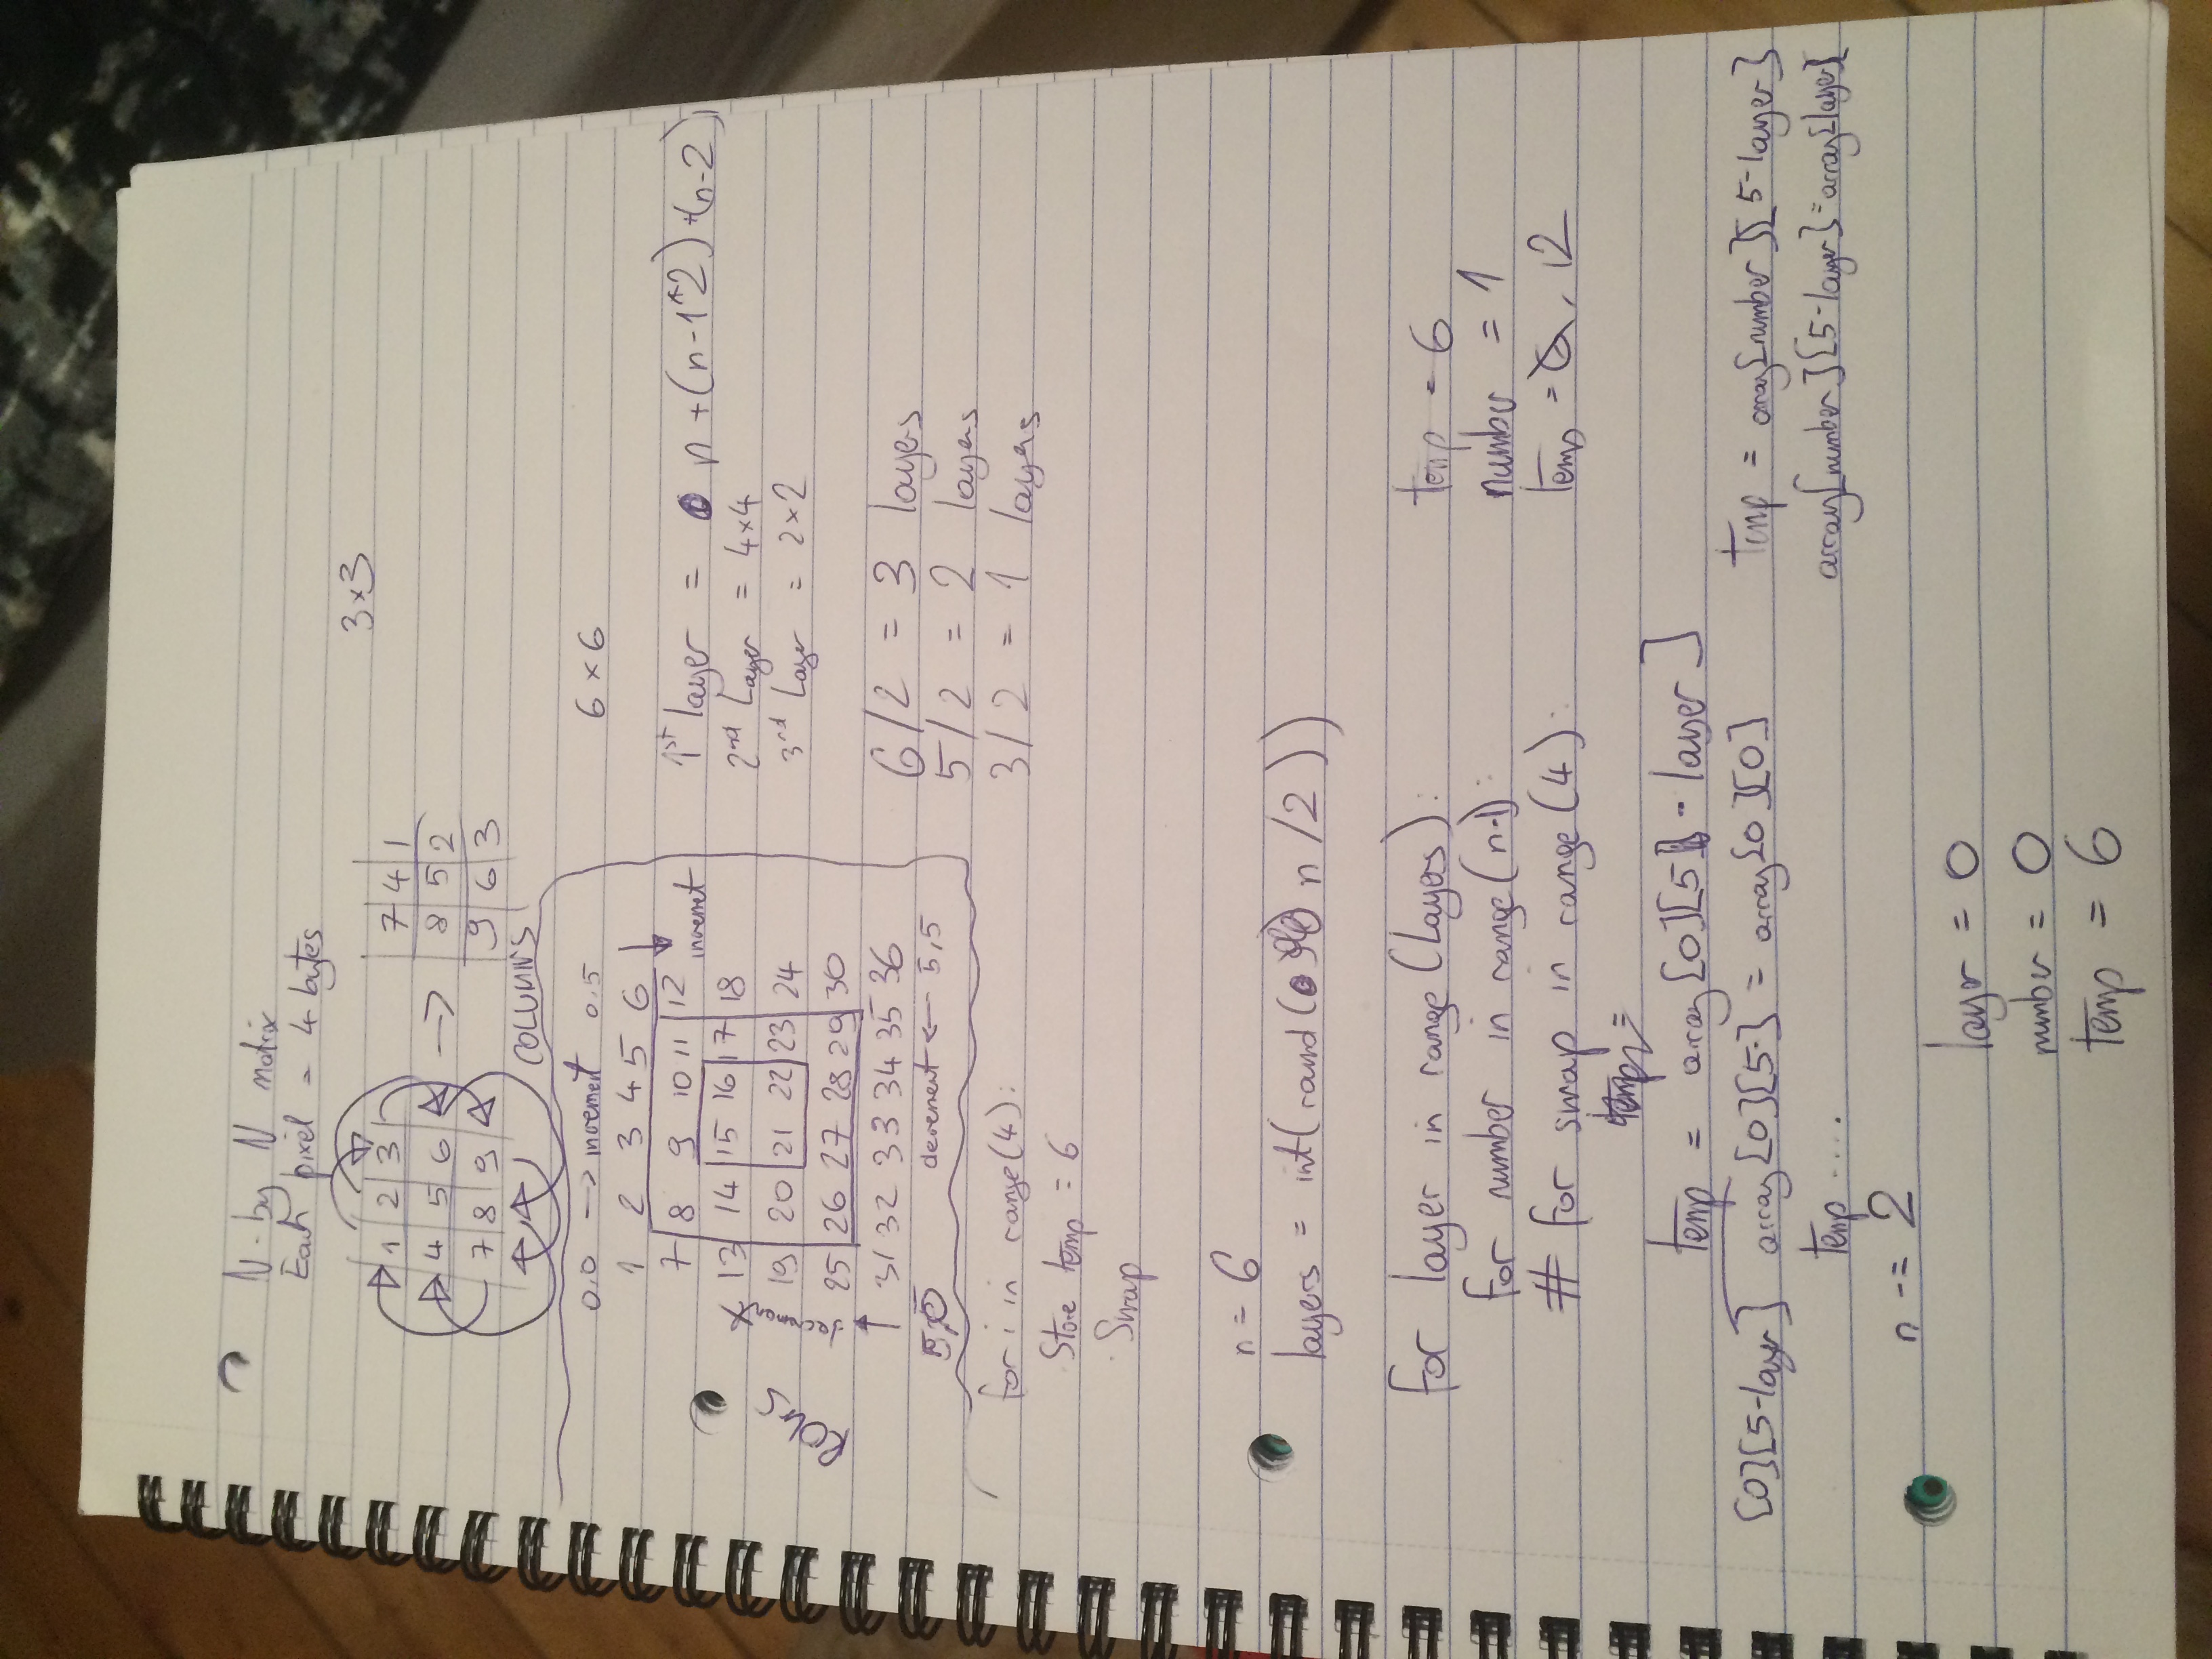 N-by N matrix
Each pixel = 4 bytes
3x3
1 2 3
4 5 6
7 8 9
->
7 4 1
8 5 2
9 6 3
COLUMNS
0,0 -> increment 0,5
1 2 3 4 5 6
7 8 9 10 11 12
increment
13 14 15 16 17 18
19 20 21 22 23 24
25 26 27 28 29 30
31 32 33 34 35 36
ROWS
decrement
5,0 decrement <- 5,5
6 x 6
1st layer = n + (n-1*2) + (n-2)
2nd Layer = 4x4
3rd Layer = 2x2
6/2 = 3 layers
5/2 = 2 layers
3/2 = 1 layers
for i in range(4):
Store temp = 6
Swap
n = 6
layers = int(round( n /2 ))
for layer in range(Layers):
for number in range(n-1):
# for swap in range(4):
temp =
temp = array[0][5 - layer]
[0][5-layer] array[0][5-] = array[0][0]
temp ....
n -= 2
temp = 6
number = 1
temp = 6, 12
temp = array[number][5-layer]
array[number][5-layer]=array[layer][
layer = 0
number = 0
temp = 6